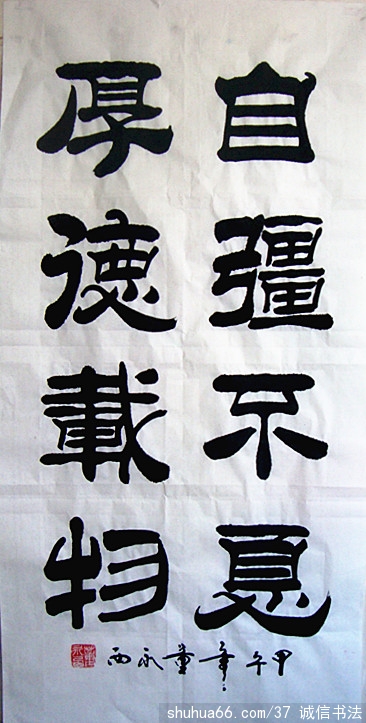 自彊不息
厚德載物
甲午年董永西
shuhua66.com/37 诚信书法